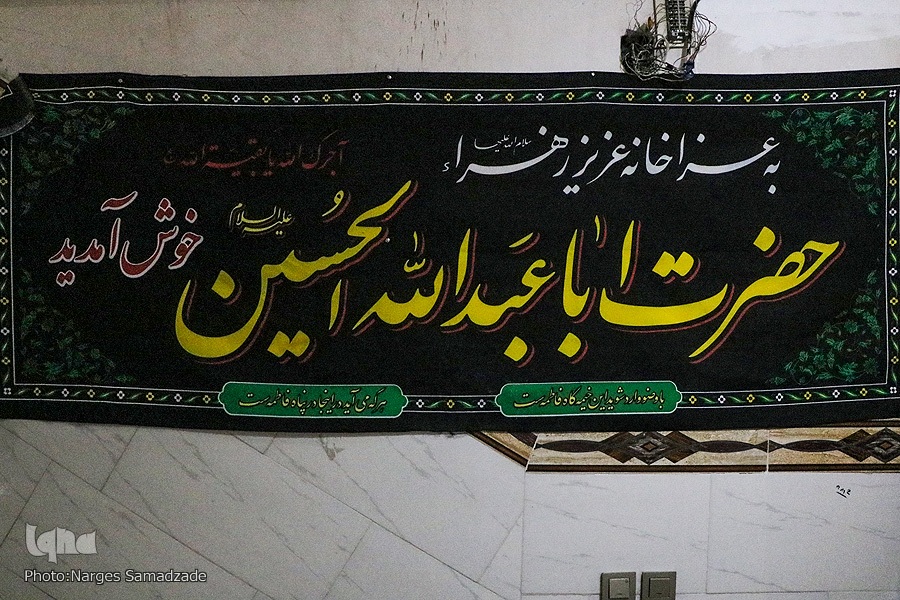 به عزاخانه عزیز زهرا سلام الله علیها
آجرک الله یا بقیة الله
حضرت اباعبدالله الحسین علیه السلام
خوش آمدید
با وضو وارد شوید این خیمه گاه فاطمه ست
هر که می آید در اینجا در پناه فاطمه ست
iqna
Photo:Narges Samadzade